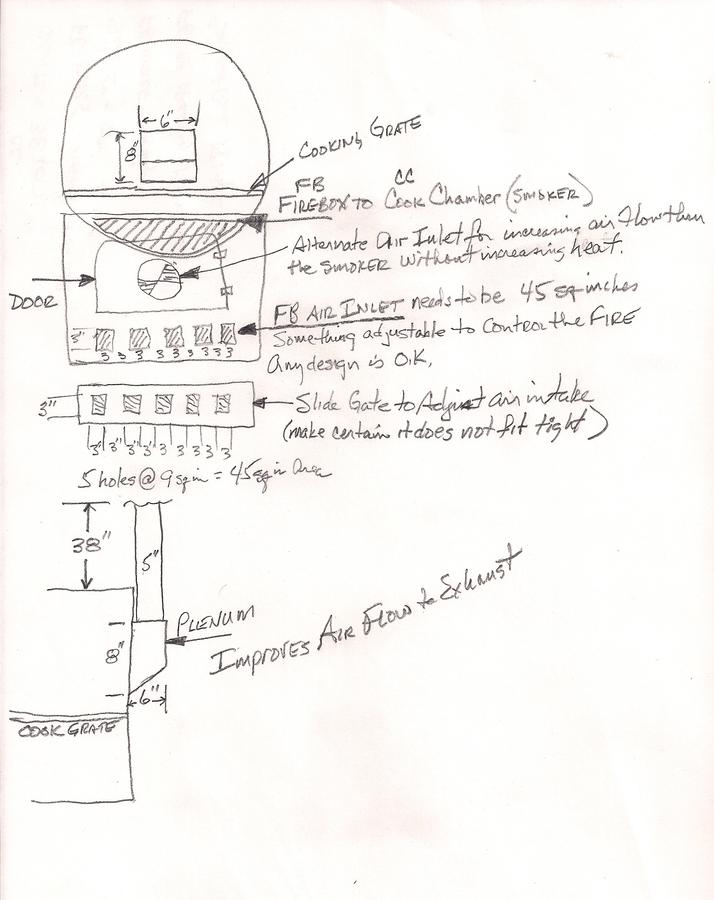 6"
8"
COOKING GRATE
FB CC
FIREBOX TO COOK CHAMBER (SMOKER)
Alternate Air Inlet for increasing air flow thru
the SMOKER without increasing heat.
DOOR
FB AIR INLET needs to be 45 sq inches
Something adjustable to control the FIRE
Any design is O.K.
3"
3 3 3 3 3 3 3 3 3
3"
Slide Gate to Adjust air intake
(make certain it does not fit tight)
3" 3" 3" 3" 3 3 3 3 3
5 holes @ 9 sq in = 45 sq in Area
38"
5"
PLENUM
IMPROVES AIR FLOW to Exhaust
8"
6"
COOK GRATE